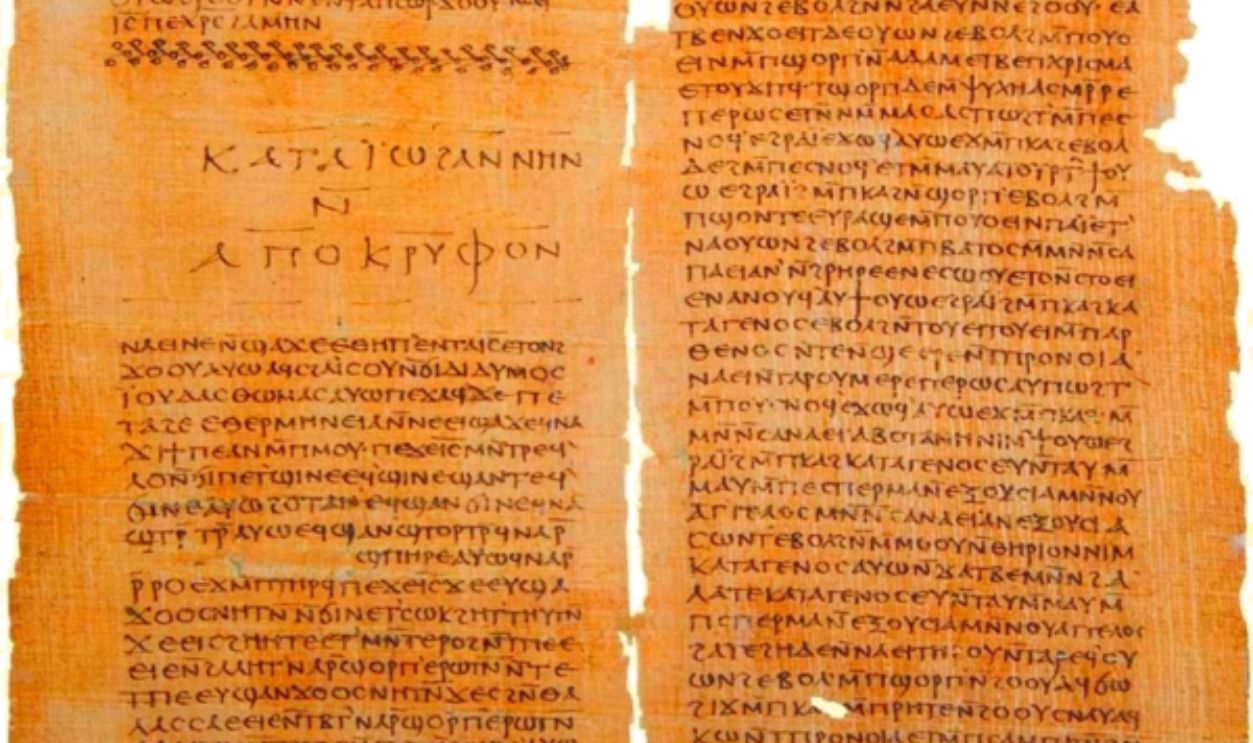 ⲓ̅ⲥ̅ ⲡⲉⲭ̅ⲣ̅ⲥ̅ ϩⲁⲙⲏⲛ
ⲕⲁⲧⲁ ⲓ̈ⲱϩⲁⲛⲛⲏⲛ
ⲛ̅
ⲁⲡⲟⲕⲣⲩⲫⲟⲛ
ⲛⲁⲉⲓ ⲛⲉ ⲛ̅ϣⲁϫⲉ ⲉⲑⲏⲡ ⲉⲛⲧⲁ ⲓ̅ⲥ̅ ⲉⲧⲟⲛϩ
ϫⲟⲟⲩ ⲁⲩⲱ ⲁϥⲥϩⲁⲓ̈ⲥⲟⲩ ⲛ̅ϭⲓ ⲇⲓⲇⲩⲙⲟⲥ
ⲓ̈ⲟⲩⲇⲁⲥ ⲑⲱⲙⲁⲥ ⲁⲩⲱ ⲡⲉϫⲁϥ ϫⲉ ⲡⲉ
ⲧⲁϩⲉ ⲉⲑⲉⲣⲙⲏⲛⲉⲓⲁ ⲛ̅ⲛⲉⲉⲓϣⲁϫⲉ ϥⲛⲁ
ϫⲓ ϯⲡⲉ ⲁⲛ ⲙ̅ⲡⲙⲟⲩ· ⲡⲉϫⲉ ⲓ̅ⲥ̅ ⲙⲛ̅ⲧⲣⲉϥ
ⲗⲟ ⲛ̅ϭⲓ ⲡⲉⲧϣⲓⲛⲉ ⲉϥϣⲓⲛⲉ ϣⲁⲛⲧⲉϥ
ϭⲓⲛⲉ ⲁⲩⲱ ϩⲟⲧⲁⲛ ⲉϥϣⲁⲛϭⲓⲛⲉ ϥⲛⲁ
ϣⲧⲣ̅ⲧⲣ̅ ⲁⲩⲱ ⲉϥϣⲁⲛϣⲧⲟⲣⲧⲣ̅ ϥⲛⲁⲣ̅
ϣⲡⲏⲣⲉ ⲁⲩⲱ ϥⲛⲁⲣ̅
ⲣ̅ⲣⲟ ⲉϫⲙ̅ ⲡⲧⲏⲣϥ ⲡⲉϫⲉ ⲓ̅ⲥ̅ ϫⲉ ⲉⲩϣⲁ
ϫⲟⲟⲥ ⲛⲏⲧⲛ̅ ⲛ̅ϭⲓ ⲛⲉⲧⲥⲱⲕ ϩⲏⲧ ⲧⲏⲩⲧⲛ̅
ϫⲉ ⲉⲓⲥϩⲏⲏⲧⲉ ⲉⲧⲙⲛ̅ⲧⲉⲣⲟ ϩⲛ̅ ⲧⲡⲉ ⲉ
ⲉⲓⲉ ⲛ̅ϩⲁⲗⲏⲧ ⲛⲁⲣ̅ ϣⲟⲣⲡ ⲉⲣⲱⲧⲛ̅ ⲛ̅ⲧⲉ
ⲧⲡⲉ ⲉⲩϣⲁⲛϫⲟⲟⲥ ⲛⲏⲧⲛ̅ ϫⲉ ⲥϩⲛ̅ ⲑⲁ
ⲗⲁⲥⲥⲁ ⲉⲉⲓⲉ ⲛ̅ⲧⲃⲧ ⲛⲁⲣ̅ ϣⲟⲣⲡ ⲉⲣⲱⲧⲛ̅
ⲟⲩⲱⲛϩ ⲉⲃⲟⲗ
ⲧⲃⲉⲛϫⲟⲉⲓⲧ ⲇⲉ ⲟⲩⲱⲛϩ ⲉⲃⲟⲗ ϩⲙ̅ ⲡⲟⲩⲟ
ⲉⲓⲛ ⲙ̅ⲡϣⲟⲣⲡ ⲛ̅ⲁⲇⲁⲙ ⲉⲧⲃⲉ ⲡⲭⲣⲓⲥⲙⲁ
ⲉⲧⲟⲩϫⲓⲧϥ· ⲧϣⲟⲣⲡ ⲇⲉ ⲙ̅ⲯⲩⲭⲏ ⲁⲥⲙⲣ̅ⲣⲉ
ⲡⲉⲣⲱⲥ ⲉⲧⲛⲙ̅ⲙⲁⲥ ⲁⲥⲡⲱϩⲧ ⲙ̅ⲡⲉⲥ
ⲛⲟϥ ⲉϩⲣⲁⲓ̈ ⲉϫⲱϥ ⲁⲩⲱ ⲉϫⲙ̅ ⲡⲕⲁϩ ⲉⲃⲟⲗ
ⲇⲉ ϩⲙ̅ ⲡⲉⲥⲛⲟϥ ⲉⲧⲙ̅ⲙⲁⲩ ⲁⲡⲟⲩⲣⲧ ϯⲟⲩ
ⲱ ⲉϩⲣⲁⲓ̈ ϩⲙ̅ ⲡⲕⲁϩ ⲛ̅ϣⲟⲣⲡ ⲉⲃⲟⲗ ϩⲙ̅
ⲡϣⲟⲛⲧⲉ ⲉⲩⲣⲁϣⲉ ⲙ̅ⲡⲟⲩⲟⲉⲓⲛ ⲡⲁⲓ̈ ⲉⲧ
ⲛⲁⲟⲩⲱⲛϩ ⲉⲃⲟⲗ ϩⲙ̅ ⲡⲃⲁⲧⲟⲥ ⲙⲛ̅ⲛ̅ⲥⲁ
ⲡⲁⲉⲓ ⲁⲛϩⲣⲏⲣⲉ ⲉⲛⲉⲥⲱⲟⲩ ⲉⲧⲟⲛ ⲥϯⲟⲉⲓ
ⲉⲛⲁⲛⲟⲩϥ ⲁⲩϯⲟⲩⲱ ⲉϩⲣⲁⲓ̈ ϩⲙ̅ ⲡⲕⲁϩ ⲕⲁ
ⲧⲁ ⲅⲉⲛⲟⲥ ⲉⲃⲟⲗ ϩⲛ̅ ⲧⲟⲩⲉⲓ ⲧⲟⲩⲉⲓ ⲙ̅ⲡⲁⲣ
ⲑⲉⲛⲟⲥ ⲛ̅ⲧⲉ ⲛ̅ϣⲉⲉⲣⲉ ⲛ̅ⲧⲡⲣⲟⲛⲟⲓⲁ
ⲛⲁⲉⲓ ⲛ̅ⲧⲁⲣⲟⲩⲙⲉⲣⲉ ⲡⲉⲣⲱⲥ ⲁⲩⲡⲱϩⲧ
ⲙ̅ⲡⲟⲩⲥⲛⲟϥ ⲉϫⲱϥ ⲁⲩⲱ ⲉϫⲙ̅ ⲡⲕⲁϩ· ⲙ
ⲙⲛ̅ⲛ̅ⲥⲁ ⲛⲁⲉⲓ ⲁⲃⲟⲧⲁⲛⲏ ⲛⲓⲙ ϯⲟⲩⲱ ⲉϩ
ⲣⲁⲓ̈ ϩⲙ̅ ⲡⲕⲁϩ ⲕⲁⲧⲁ ⲅⲉⲛⲟⲥ ⲉⲩⲛ̅ⲧⲁⲩ ⲙ̅
ⲙⲁⲩ ⲙ̅ⲡⲉⲥⲡⲉⲣⲙⲁ ⲛ̅ⲉⲝⲟⲩⲥⲓⲁ ⲙⲛ̅ ⲛⲟⲩ
ⲁⲅⲅⲉⲗⲟⲥ ⲙⲛ̅ⲛ̅ⲥⲁ ⲛⲁⲉⲓ ⲁⲛⲉⲝⲟⲩⲥⲓⲁ
ⲥⲱⲛⲧ ⲉⲃⲟⲗ ϩⲛ̅ ⲙ̅ⲙⲟⲟⲩ ⲛ̅ⲑⲏⲣⲓⲟⲛ ⲛⲓⲙ
ⲕⲁⲧⲁ ⲅⲉⲛⲟⲥ ⲁⲩⲱ ⲛ̅ϫⲁⲧⲃⲉ ⲙⲛ̅ ⲛ̅ϩⲁ
ⲗⲁⲧⲉ ⲕⲁⲧⲁ ⲅⲉⲛⲟⲥ ⲉⲩⲛ̅ⲧⲁⲩ ⲙ̅ⲙⲁⲩ ⲙ̅
ⲡⲥⲡⲉⲣⲙⲁ ⲛ̅ⲉⲝⲟⲩⲥⲓⲁ ⲙⲛ̅ ⲛⲟⲩⲁⲅⲅⲉⲗⲟⲥ
ϩⲁⲧⲉϩⲏ ⲇⲉ ⲛ̅ⲛⲁⲉⲓ ⲧⲏⲣⲟⲩ ⲛ̅ⲧⲁⲣⲉϥⲟⲩ
ⲱⲛϩ ⲉⲃⲟⲗ ⲙ̅ⲡϣⲟⲣⲡ ⲛ̅ϩⲟⲟⲩ ⲁϥϭⲱ
ϩⲓϫⲙ̅ ⲡⲕⲁϩ ⲙ̅ⲡⲣⲏⲧⲉ ⲛ̅ϩⲟⲟⲩ ⲥⲛⲁⲩ ⲁϥ